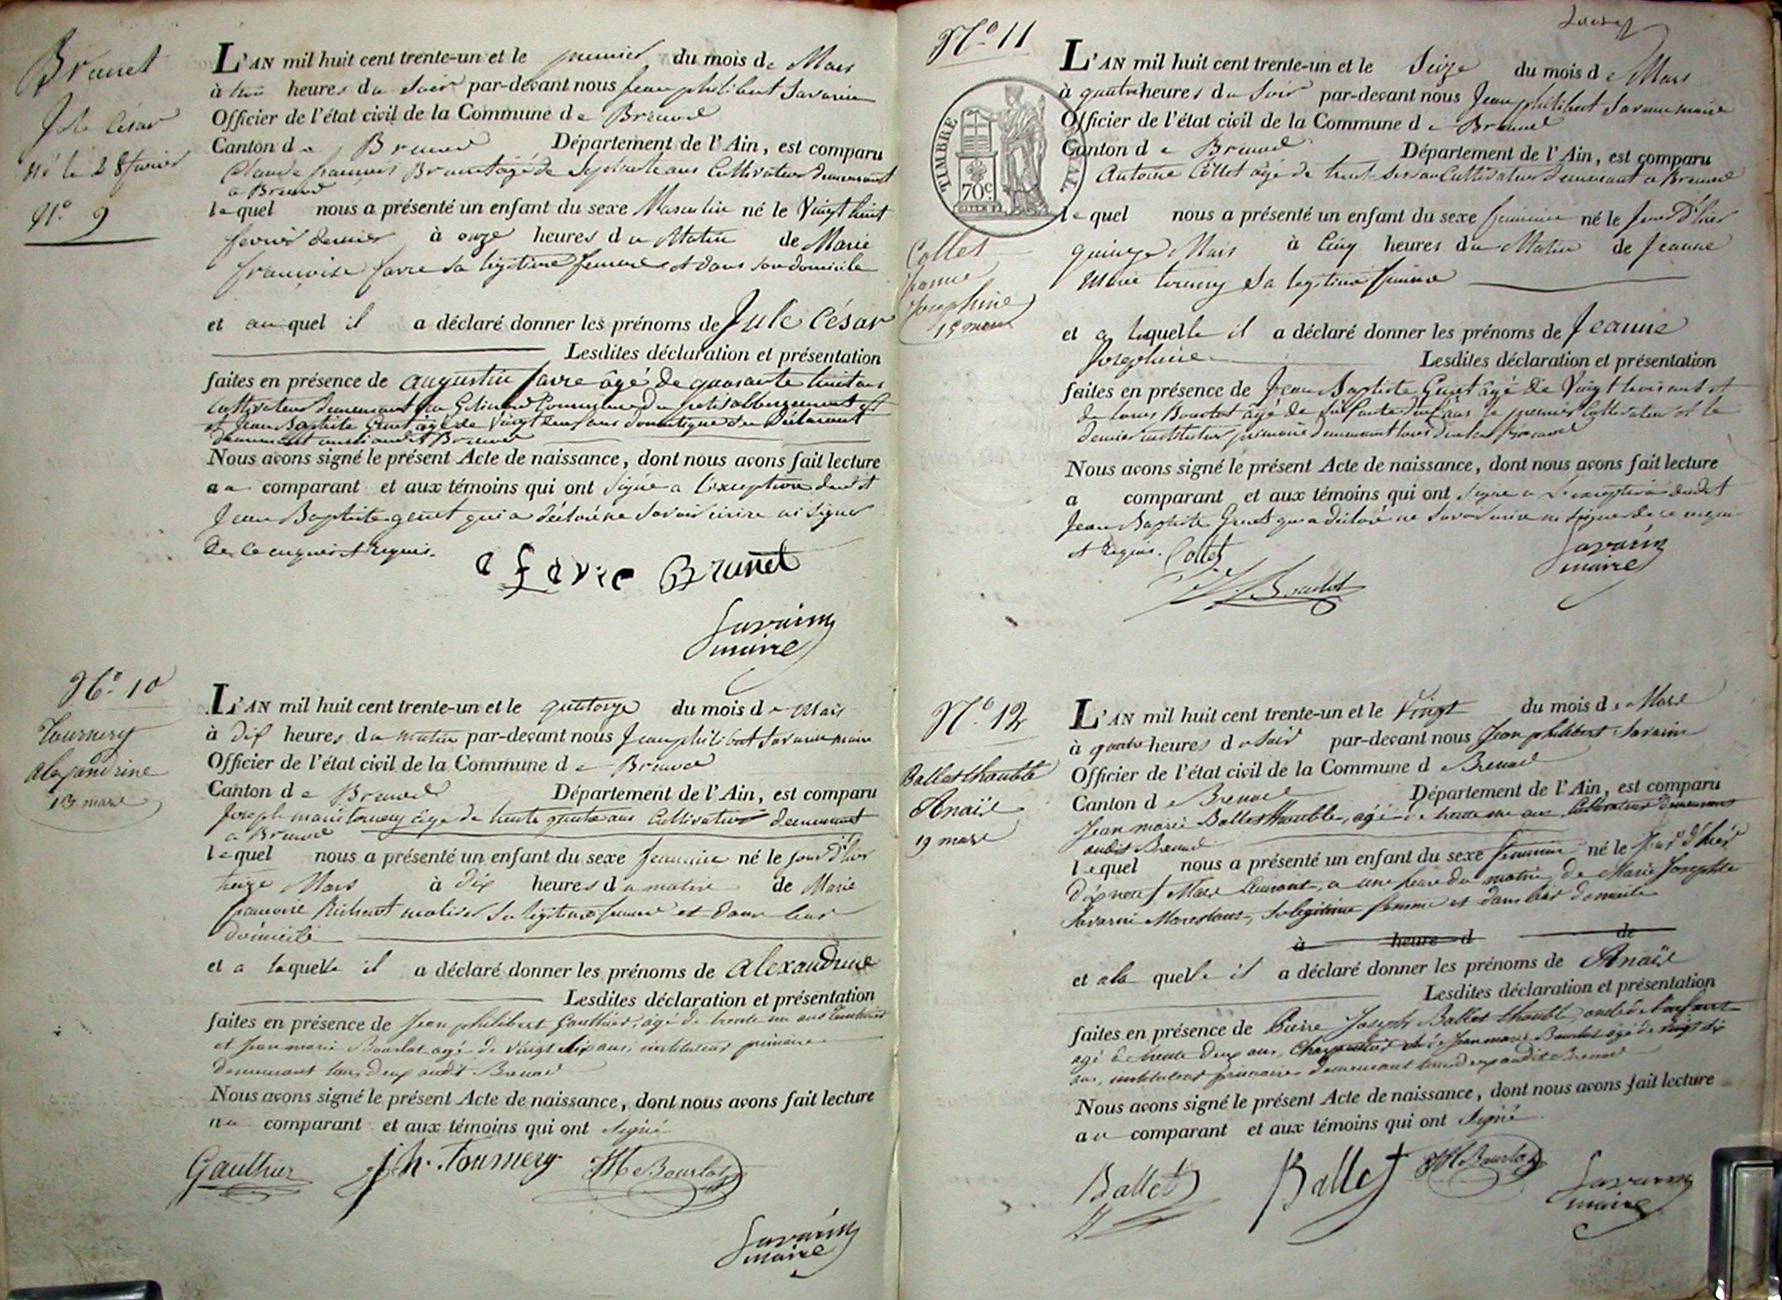 Brunet
Jule César
Né le 28 fevrier
N.º 9
L'AN mil huit cent trente-un et le premier du mois de Mars
à heures du soir par-devant nous Jean philibert Savarin
Officier de l'état civil de la Commune de Brenod
Canton de Brenod Département de l'Ain, est comparu
Claude françois Brunet âgé de Septante ans Cultivateur demeurant
a Brenod
lequel nous a présenté un enfant du sexe Masculin né le Vingt huit
fevrier dernier à onze heures du Matin de Marie
françoise favre sa legitime femme et dans son domicile
et auquel il a déclaré donner les prénoms de Jule César
Lesdites déclaration et présentation
faites en présence de augustin favre âgé de quarante huit ans
cultivateur demeurant du petit abbergement et
et Jean Baptiste Genet âgé de Vingt ans domestique du Déclarant
demeurant aussi audit Brenod
Nous avons signé le présent Acte de naissance, dont nous avons fait lecture
au comparant et aux témoins qui ont signé a l'exception dudit
Jean Baptiste genet qui a déclaré ne Savoir écrire ni Signer
de ce enquis et requis.
a favre Brunet
Savarin
maire
N.º 10
Tournery
alexandrine
13 mars
L'AN mil huit cent trente-un et le quatorze du mois de Mars
à dix heures du matin par-devant nous Jean philibert Savarin maire
Officier de l'état civil de la Commune de Brenod
Canton de Brenod Département de l'Ain, est comparu
Joseph marie tournery âgé de trente quatre ans Cultivateur demeurant
a Brenod
lequel nous a présenté un enfant du sexe feminin né le jour d'hier
treize Mars à dix heures du matin de Marie
françoise Richerot sa legitime femme et dans leur
domicile
et a laquelle il a déclaré donner les prénoms de alexandrine
Lesdites déclaration et présentation
faites en présence de Jean philibert Gauthier, âgé de trente un ans
et Jean marie Bourlot agé de vingt six ans, instituteur primaire
demeurant tous deux audit Brenod
Nous avons signé le présent Acte de naissance, dont nous avons fait lecture
au comparant et aux témoins qui ont signé
Gauthier Jh. Tournery JM Bourlot
Savarin
maire
N.º 11
TIMBRE ROYAL
70 c
Collet
Jeanne
Josephine
15 mars
L'AN mil huit cent trente-un et le Seize du mois de Mars
à quatre heures du Soir par-devant nous Jean philibert Savarin maire
Officier de l'état civil de la Commune de Brenod
Canton de Brenod Département de l'Ain, est comparu
Antoine Collet agé de trente six ans Cultivateur demeurant a Brenod
lequel nous a présenté un enfant du sexe feminin né le Jour D'hier
quinze Mars à Cinq heures du Matin de Jeanne
Marie tournery sa legitime femme
et a laquelle il a déclaré donner les prénoms de Jeanne
Josephine Lesdites déclaration et présentation
faites en présence de Jean Baptiste Genet âgé de Vingt trois ans et
de Louis Bourlot âgé de ans le premier Cultivateur et le
dernier instituteur primaire demeurant tous deux a Brenod
Nous avons signé le présent Acte de naissance, dont nous avons fait lecture
a comparant et aux témoins qui ont signé a L'exception dudit
Jean Baptiste Genet qui a déclaré ne Savoir écrire ni signer de ce enquis
et requis. Collet
Bourlot
Savarin
maire
N.º 12
Ballet thauble
Anaïs
19 mars
L'AN mil huit cent trente-un et le Vingt du mois de Mars
à quatre heures du soir par-devant nous Jean philibert Savarin
Officier de l'état civil de la Commune de Brenod
Canton de Brenod Département de l'Ain, est comparu
Jean marie Ballet thauble, agé de trente ans Cultivateur demeurant
audit Brenod
lequel nous a présenté un enfant du sexe feminin né le Jour d'hier
dix neuf Mars Courant, a une heure du matin, de Marie Josephte
Savarin Marestant, sa legitime femme et dans leur domicile
à heure d de
et a la quelle il a déclaré donner les prénoms de Anaïs
Lesdites déclaration et présentation
faites en présence de Pierre Joseph Ballet thauble oncle de l'enfant
agé de trente deux ans, Charpentier et de Jean marie Bourlot agé de vingt six
ans, instituteur primaire demeurant tous deux audit Brenod
Nous avons signé le présent Acte de naissance, dont nous avons fait lecture
au comparant et aux témoins qui ont Signé
Ballet Ballet JM Bourlot
Savarin
maire